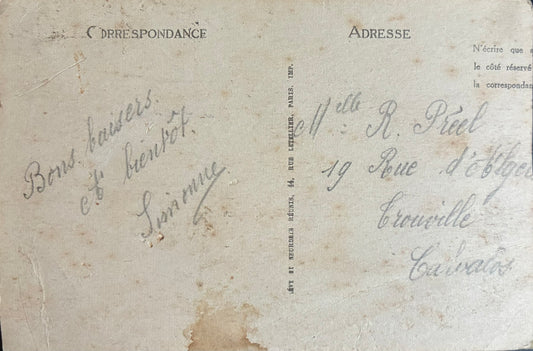 CORRESPONDANCE
ADRESSE
N'écrire que s
le côté réservé
la correspondan
Bons baisers
et bientôt.
Simonne
LÉVY ET NEURDEIN RÉUNIS, 44, RUE LETELLIER, PARIS. IMP.
Melle R. Préel
19 Rue d'Alger
Trouville
Calvados